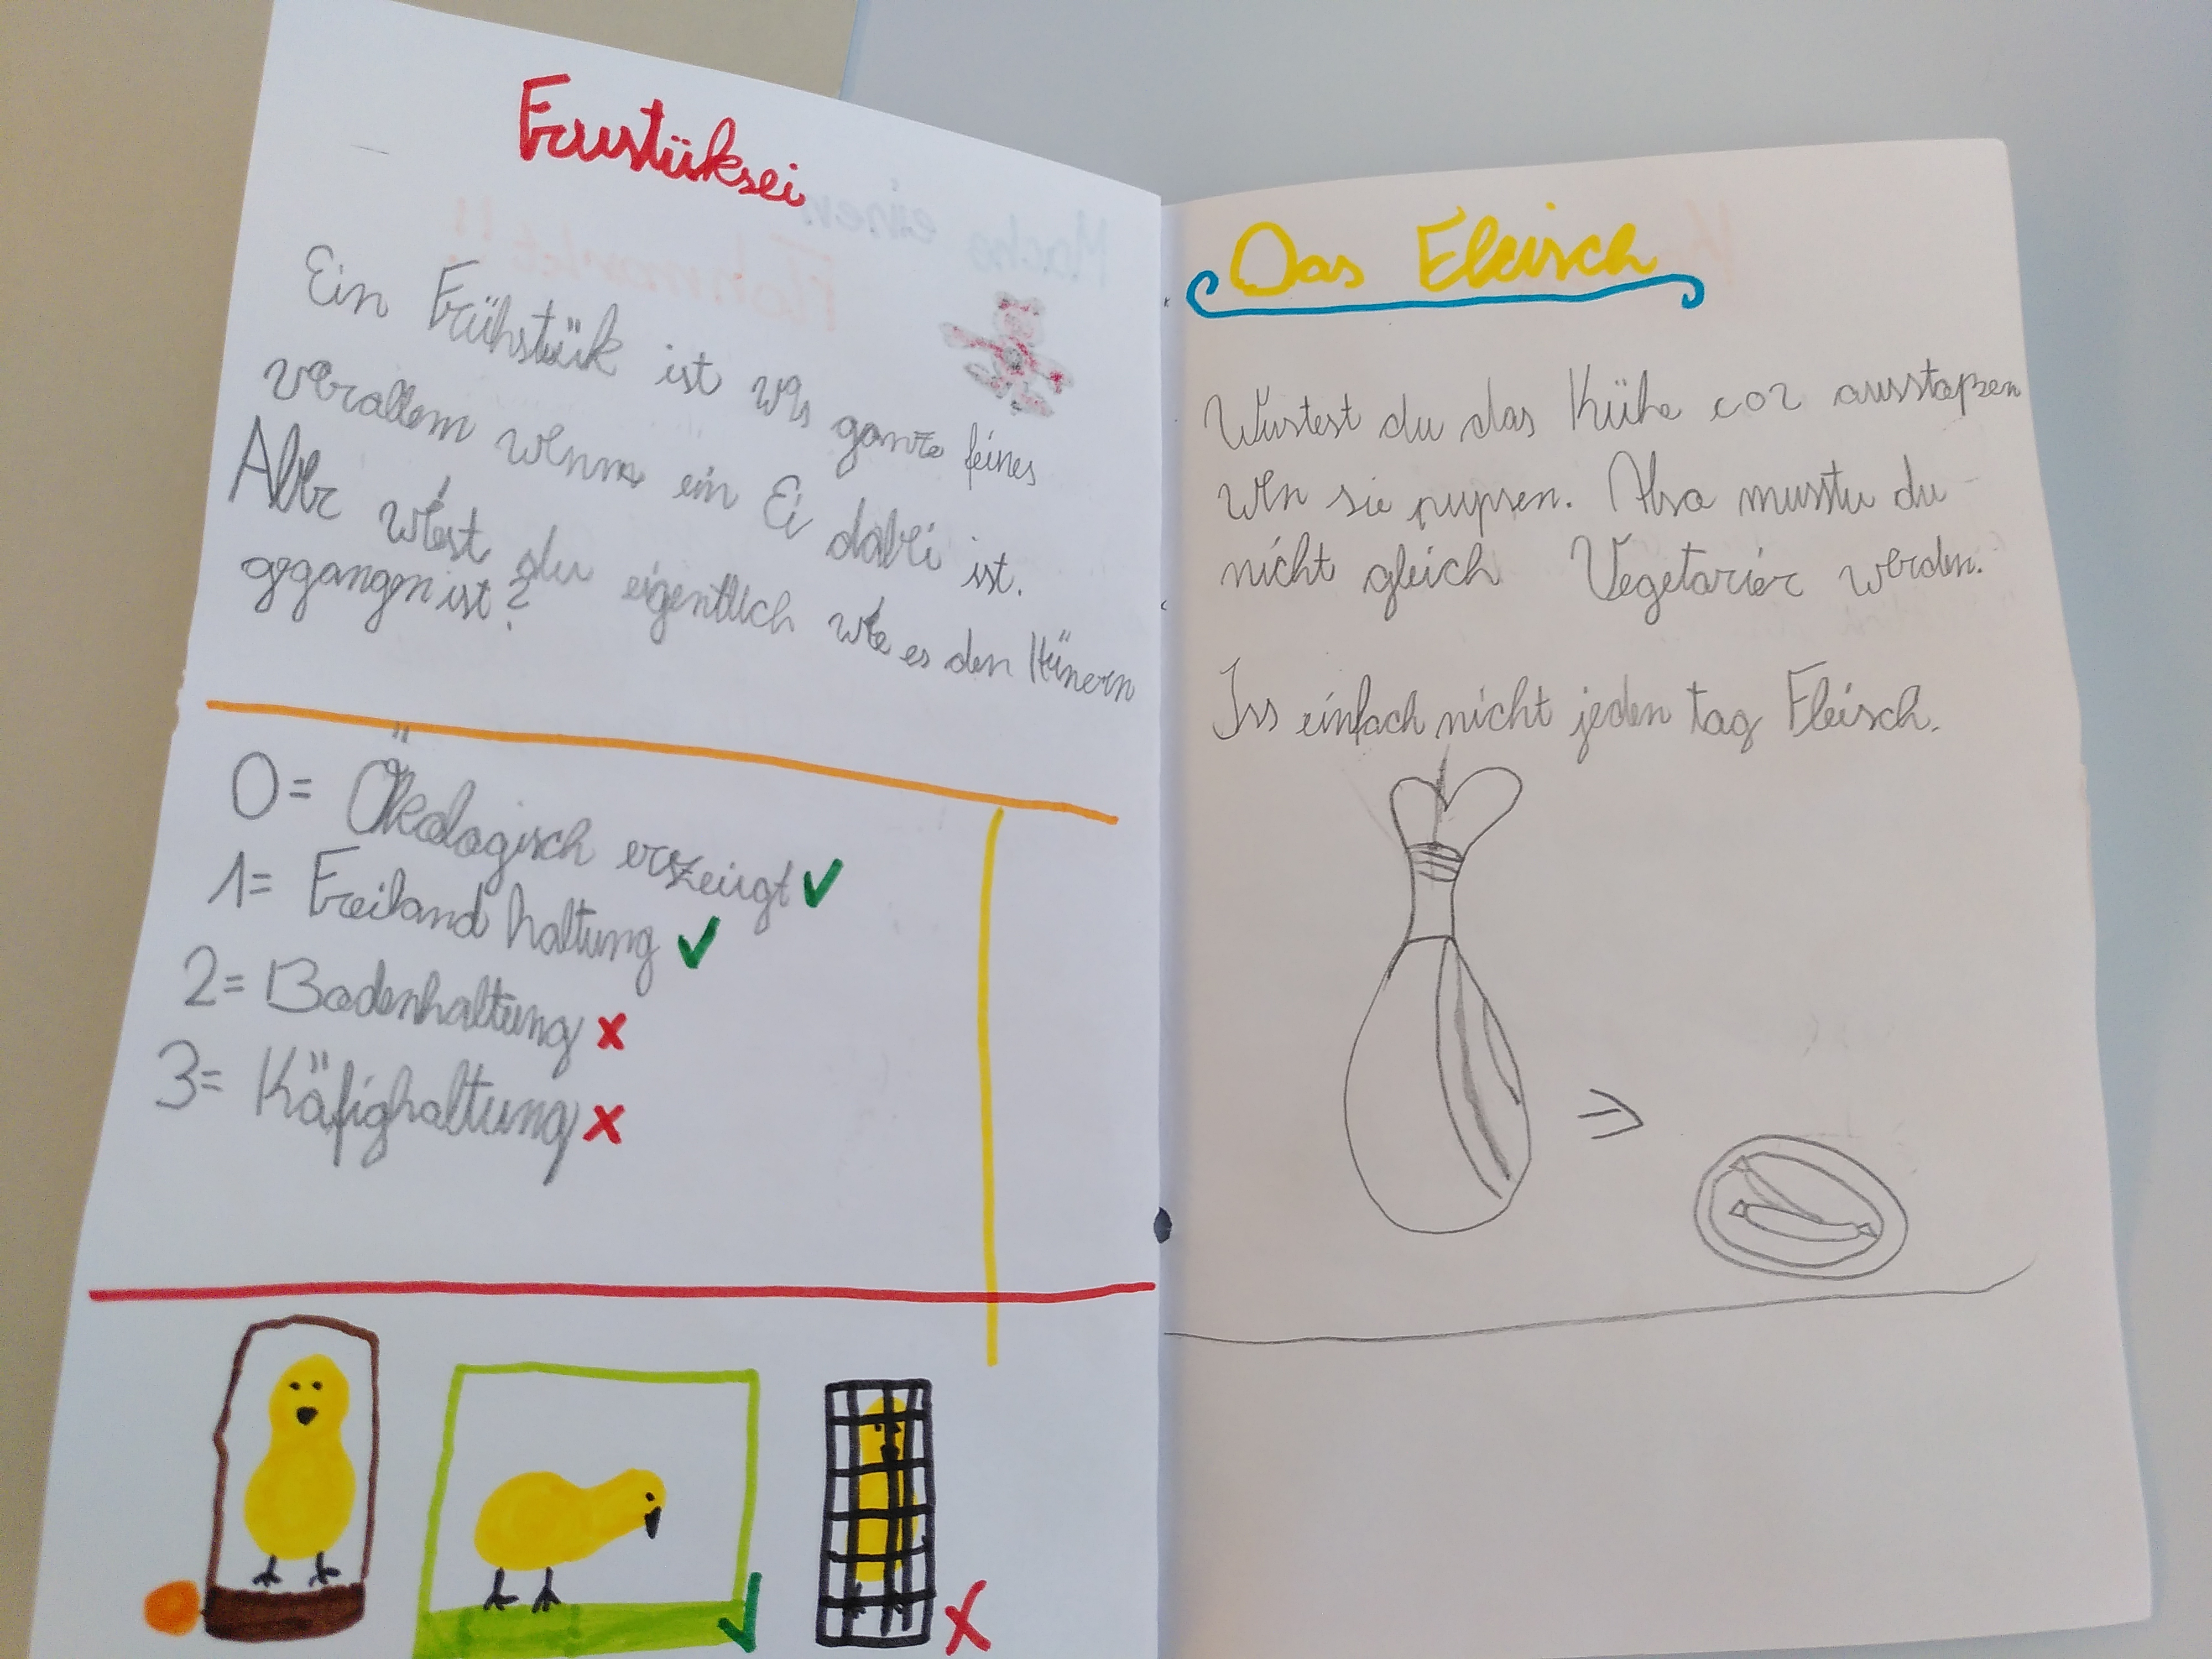 Frustüksei
Ein Frühstük ist was ganze feines
vorallem wenn ein Ei dabei ist.
Aber wiest du eigentlich wie es den Hünern
gegangen ist?
0= Ökologisch erszeugt ✓
1= Freiland haltung ✓
2= Bodenhaltung x
3= Käfighaltung x
Das Fleisch
Wustest du das Kühe co2 ausstoßen
wen sie pupsen. Also musstu du
nicht gleich Vegetarier werden.
Iss einfach nicht jeden tag Fleisch.